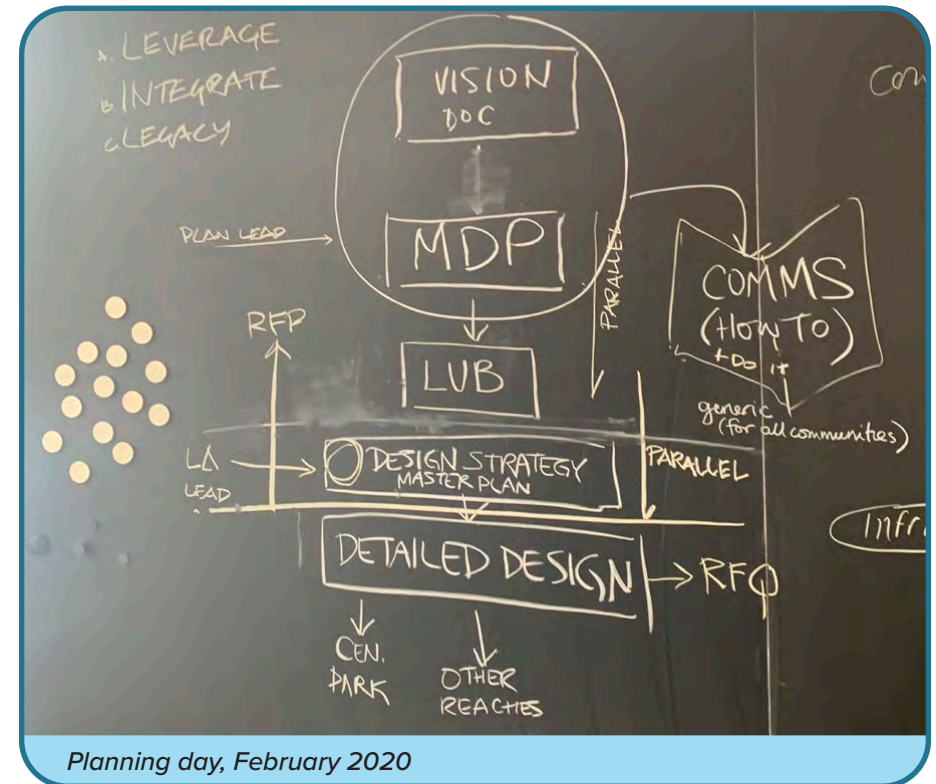 A. LEVERAGE
B. INTEGRATE
C. LEGACY
VISION
DOC
PLAN LEAD
MDP
PARALLEL
COMMS
(HOW TO)
+DO it
generic
(for all communities)
RFP
LUB
LA
LEAD
DESIGN STRATEGY
MASTER PLAN
PARALLEL
DETAILED DESIGN
RFQ
CEN.
PARK
OTHER
REACHES
Planning day, February 2020